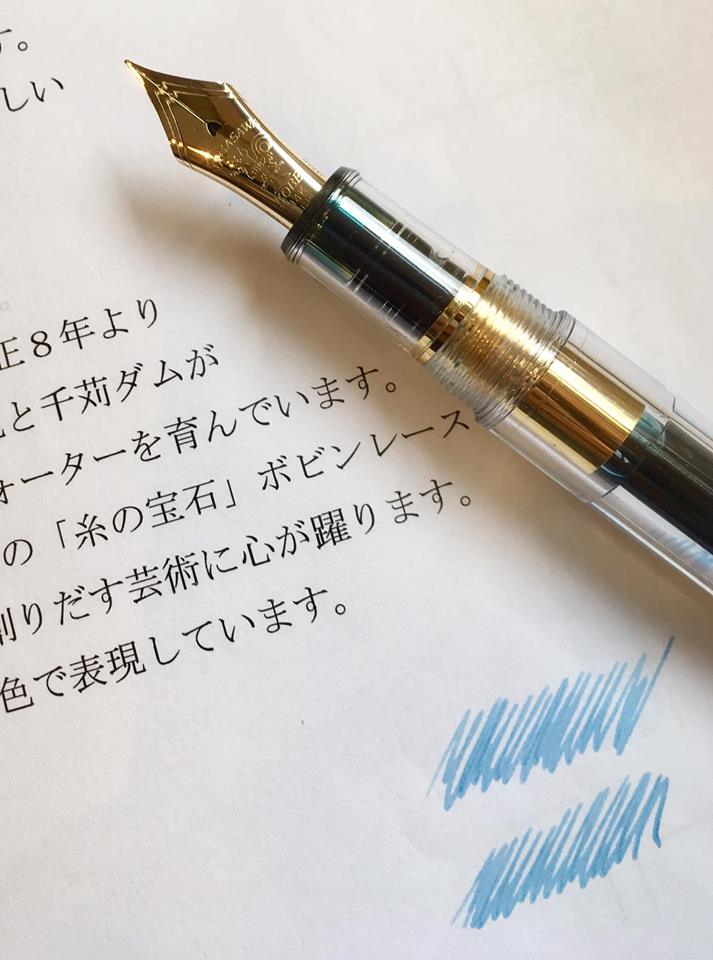 す。
しい
正８年より
と千苅ダムが
ォーターを育んでいます。
の「糸の宝石」ボビンレース
創りだす芸術に心が躍ります。
色で表現しています。
NAGASAWA
KOBE